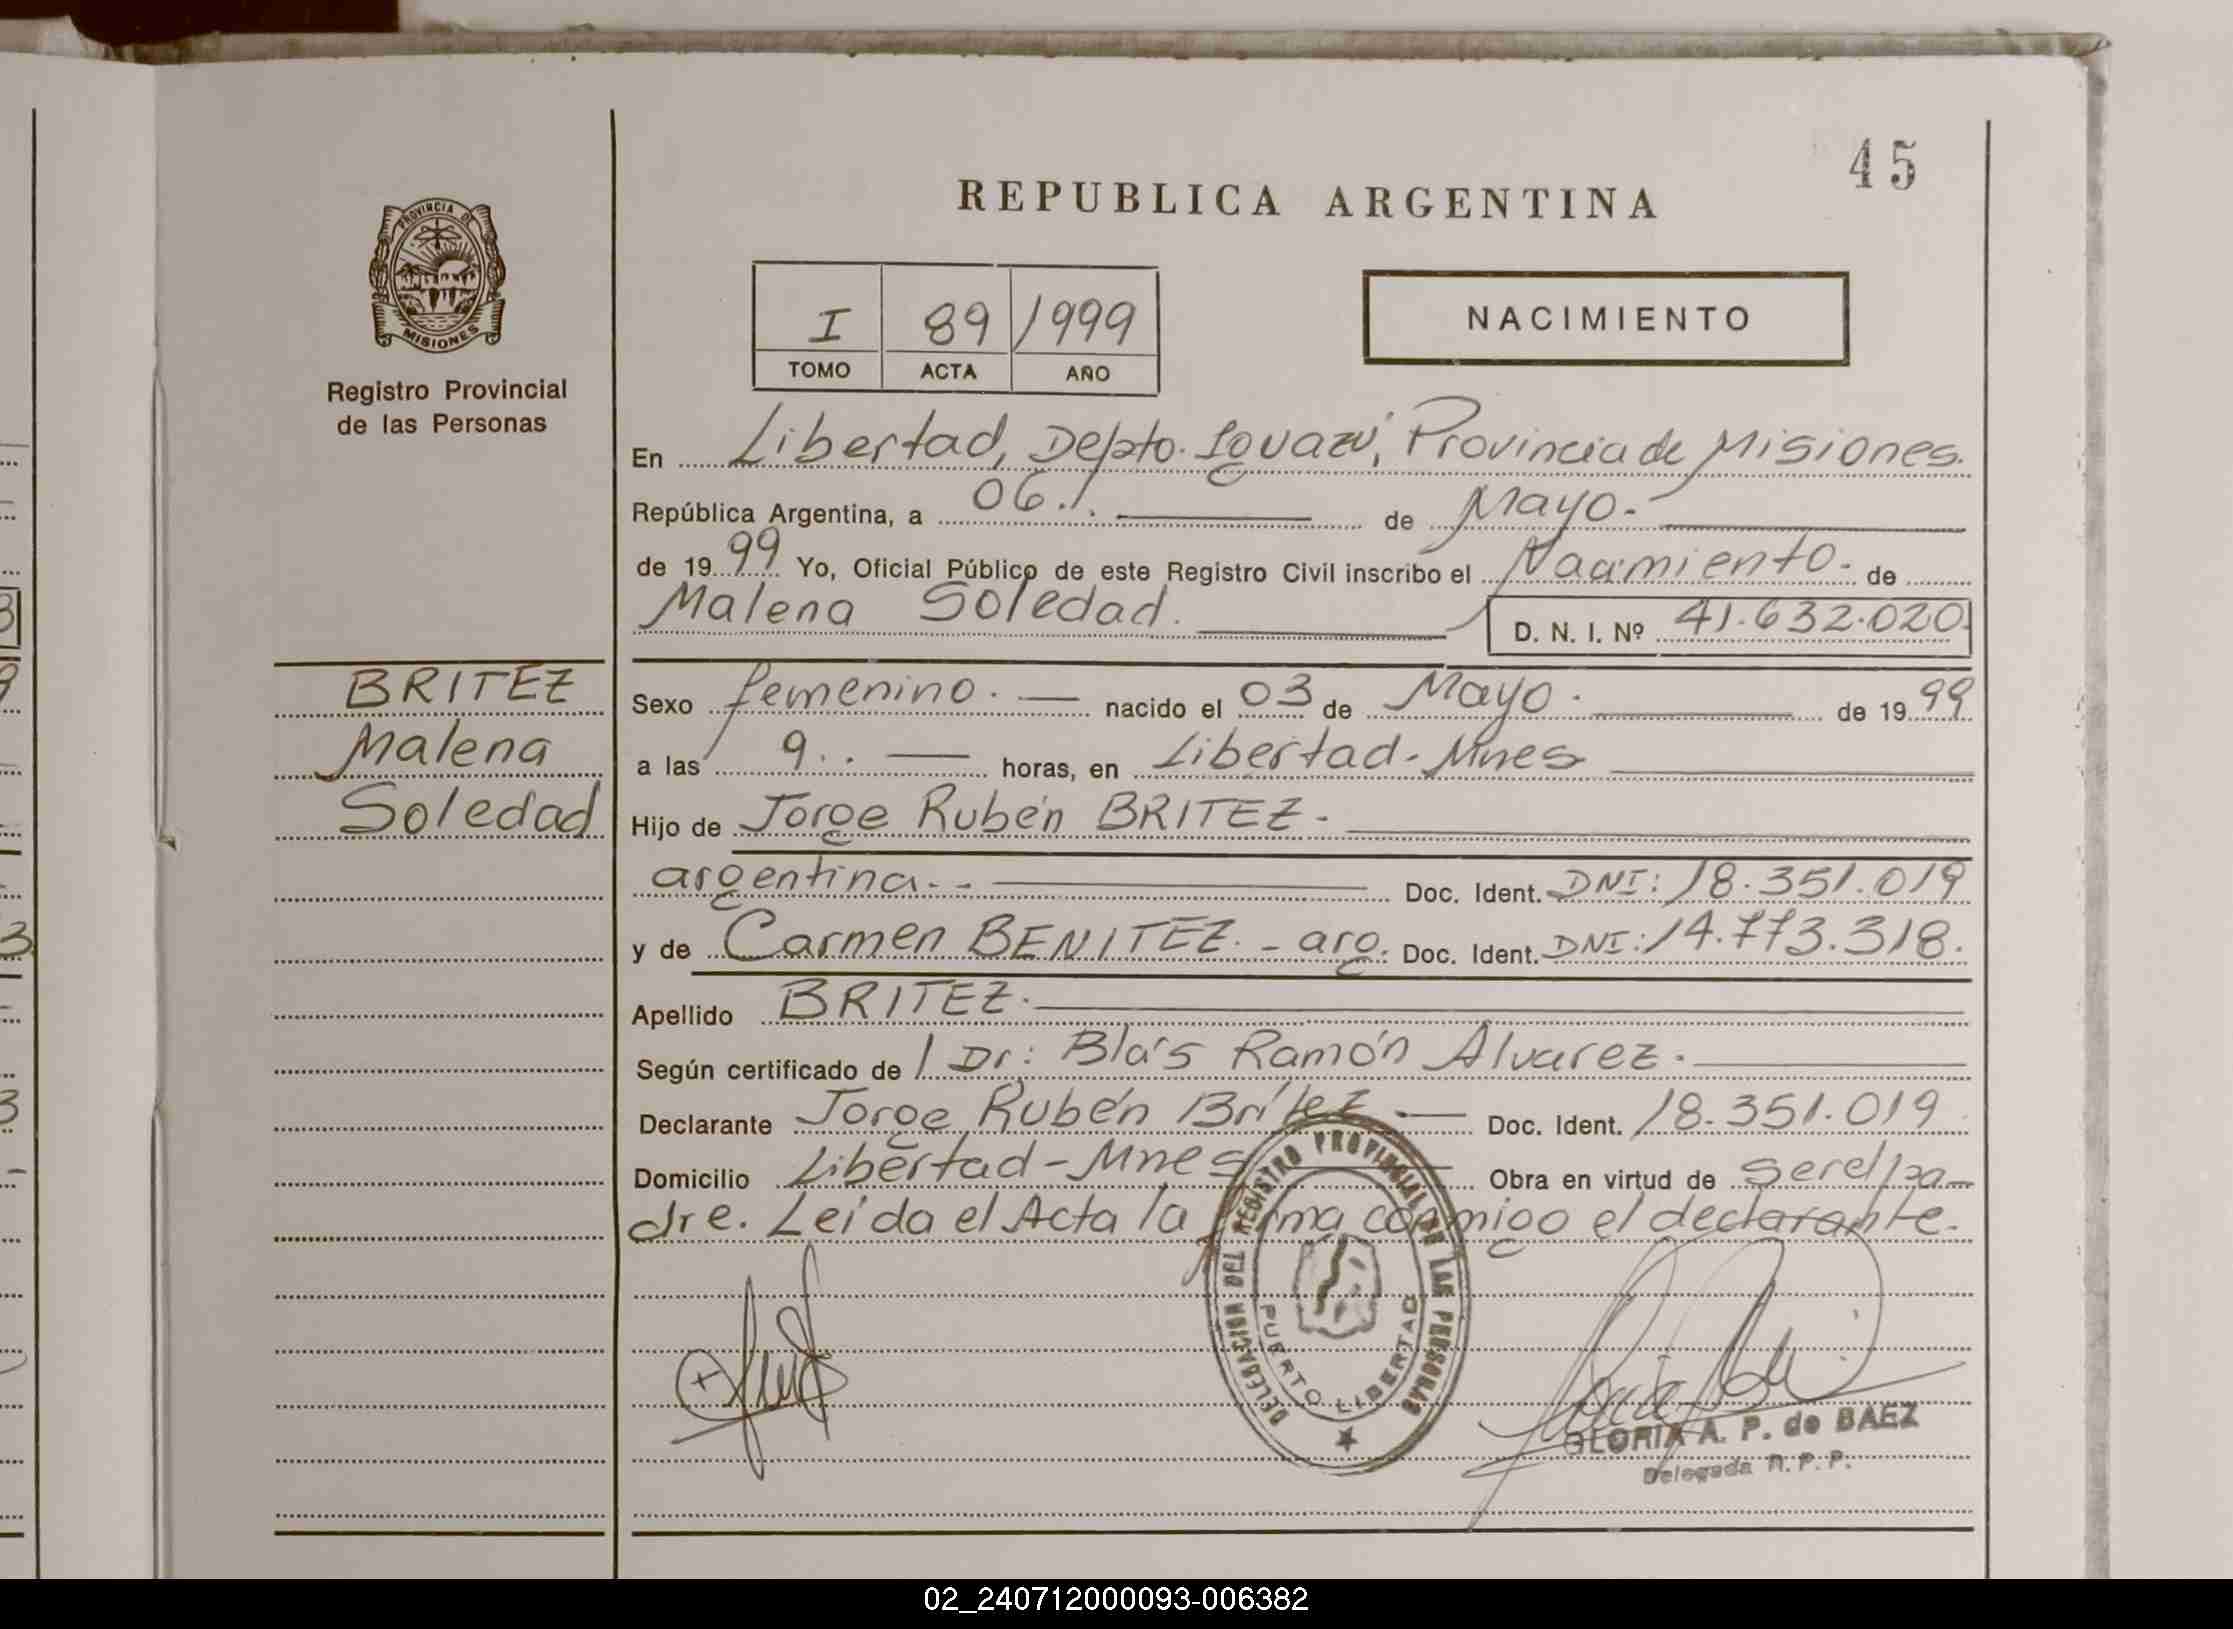 45
REPUBLICA ARGENTINA
PROVINCIA DE
MISIONES
Registro Provincial
de las Personas
I 89 1999
TOMO ACTA AÑO
NACIMIENTO
En Libertad, Depto. Iguazú, Provincia de Misiones.
República Argentina, a 06./. de Mayo.-
de 1999 Yo, Oficial Público de este Registro Civil inscribo el Nacimiento. de
Malena Soledad. D. N. I. Nº 41.632.020.
BRITEZ
Malena
Soledad
Sexo femenino. nacido el 03 de Mayo. de 1999
a las 9.. horas, en Libertad-Mnes
Hijo de Jorge Rubén BRITEZ.
argentina.- Doc. Ident. DNI: 18.351.019
y de Carmen BENITEZ.- arg. Doc. Ident. DNI: 14.773.318.
Apellido BRITEZ.
Según certificado de / Dr: Blás Ramón Alvarez.
Declarante Jorge Rubén Brítez Doc. Ident. 18.351.019
Domicilio Libertad-Mnes Obra en virtud de ser el pa-
dre. Leída el Acta la firma conmigo el declarante.
DELEGACION DEL REGISTRO PROVINCIAL DE LAS PERSONAS
PUERTO LIBERTAD
GLORIA A. P. de BAEZ
Delegada R. P. P.
02_240712000093-006382